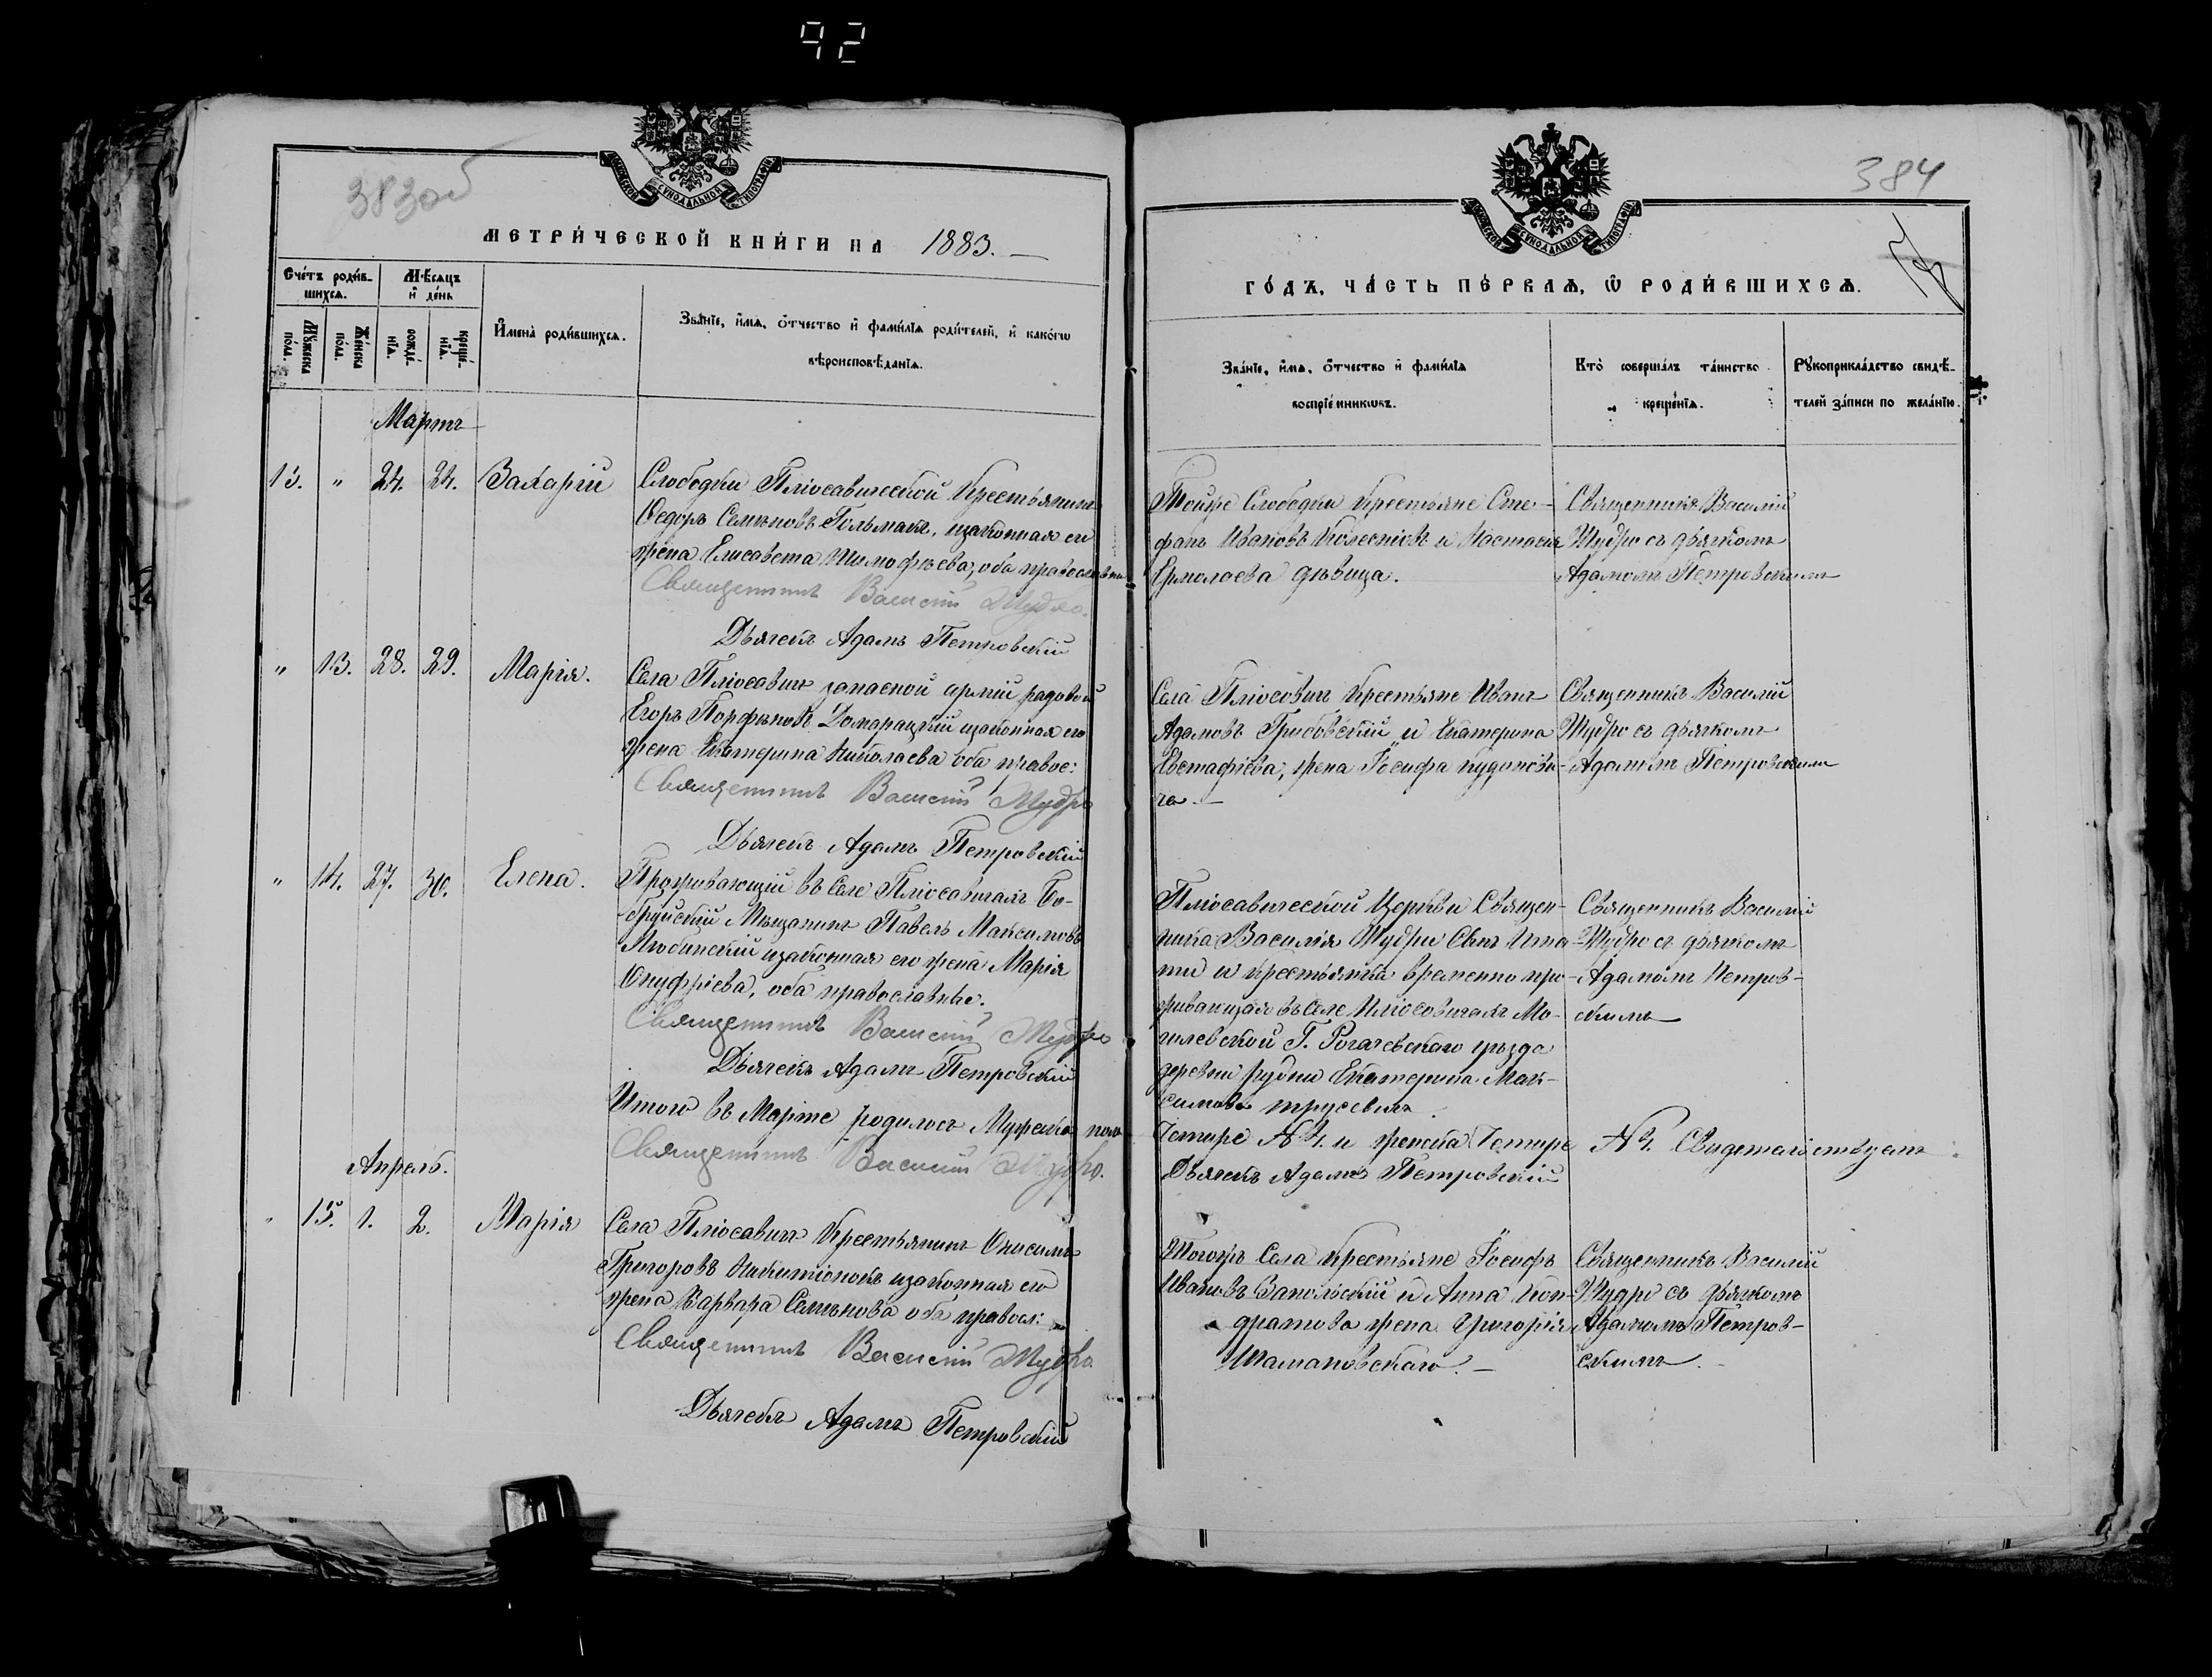 92
383об
МОСКОВСКОЙ СУНОДАЛЬНОЙ ТИПОГРАФІИ
МЕТРИ́ЧЕСКОЙ КНИ́ГИ НА 1883.
Сче́тъ роди́в-
шихсѧ.
Мѣ́сѧцъ
и де́нь
Мꙋ́жеска
по́ла.
Же́нска
по́ла.
рожде́-
нїѧ.
креще́-
нїѧ.
Имена̀ роди́вшихсѧ.
Зва́нїе, и́мѧ, ѻ́тчество и фами́лїѧ роди́телей, и како́гѡ
вѣроисповѣ́данїѧ.
Мартъ
13. " 24. 24. Захарій
Слободки Плюсавической Крестьянинъ
Ѳедоръ Семеновъ Гольмакъ, изаконная его
жена Елисавета Тимофѣева, оба православны
Священникъ Василій Мудро.
Дьячекъ Адамъ Петровскій
" 13. 28. 29. Марія.
Села Плюсавичъ запасной арміи рядовой
Егоръ Парфеновъ Домарацкій изаконная его
жена Екатерина Николаева оба правос:
Священникъ Василій Мудро
Дьячекъ Адамъ Петровскій
" 14. 27. 30. Елена.
Проживающій въ Селе Плюсавичахъ Бо-
бруйскій Мѣщанинъ Павелъ Максимовъ
Любинскій изаконная его жена Марія
Онуфріева, оба православные.
Священникъ Василій Мудро
Дьячекъ Адамъ Петровскій
Итого въ Марте родилось Мужеска пола
Священникъ Василій Мудро.
Апрель.
" 15. 1. 2. Марія
Села Плюсавичъ Крестьянинъ Онисимъ
Григоровъ Никитіонокъ изаконная его
жена Варвара Семенова оба правосл:
Священникъ Василій Мудро
Дьячекъ Адамъ Петровскій
384
МОСКОВСКОЙ СУНОДАЛЬНОЙ ТИПОГРАФІИ
ГО́ДЪ, ЧА́СТЬ ПЕ́РВАѦ, Ѡ РОДИ́ВШИХСѦ.
Зва́нїе, и́мѧ, ѻ́тчество и фами́лїѧ
воспрїе́мникѡвъ.
Кто̀ соверша́лъ та́инство
креще́нїѧ.
Рꙋкоприкла́дство свидѣ́-
телей за́писи по жела́нїю.
Тойже Слободки Крестьяне Сте-
фанъ Ивановъ Колесникъ и Настасия
Ермолаева дѣвица.
Священникъ Василій
Мудро съ дьячкомъ
Адамомъ Петровскимъ
Села Плюсовичъ Крестьяне Иванъ
Адамовъ Грибовскій и Екатерина
Евстафіева, жена Іосифа Кудинови-
ча.
Священникъ Василій
Мудро съ дьячкомъ
Адамомъ Петровскимъ
Плюсавической Церкви Священ-
ника Василія Мудри Сынъ Игна-
тій и крестьянка временно про-
живающая въ Селе Плюсовичахъ Мо-
гилевской Г. Рогачевскаго уѣзда
деревни Рудни Екатерина Мак-
симова Трусевичъ.
Священникъ Василій
Мудро съ дьячкомъ
Адамомъ Петров-
скимъ
Четыре №4. и женска Четыре №4. Свидетельствуемъ
Дьячекъ Адамъ Петровскій
Тогожъ Села крестьяне Іосифъ
Ивановъ Запольскій и Анна Кон-
дратова жена Григорія
Шамановскаго.
Священникъ Василій
Мудро съ дьячкомъ
Адамомъ Петров-
скимъ.